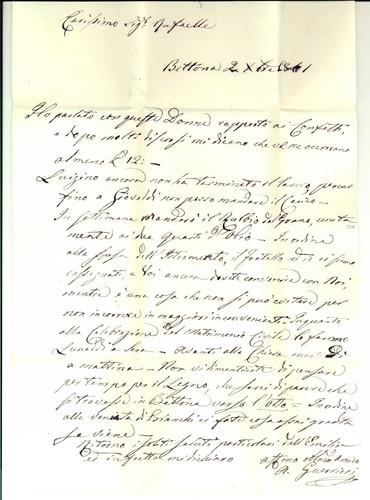 Carissimo Sigr Raffaelle
Bettona 2 Xbre 1861
Ho parlato con queste Donne rapporto ai Confetti,
e dopo molti discorsi mi dicono che ve ne occorrono
almeno £ 12: -
Luigino ancora non ha terminato il lavoro percui
fino a Giovedì non posso mandare il Carico -
In settimana manderò il Rubbio del Grano,
mente ai due quarti d'Olio - In ordine
alla spesa dell'Istromento, il fratello ed io ci siamo
rassegnati, e Voi ancora dovete convenire con Noi,
mentre è una cosa che non si può evitare per
non incorrere in maggiori inconvenienti. Inquanto
alla Celebrazione del Matrimonio Civile lo faremo
Lunedì a Sera - Avanti alla Chiesa
a mattina - Non vi dimenticate di pensare
per tempo per il Legno, che farei di
si trovasse in Bettona verso l'otto - In ordine
alla venuta di Bianchi ci farà cosa assai gradita
se viene -
Ritorno i soliti saluti particolari dell'Emilia
ed in fretta mi dichiaro
Guerrieri